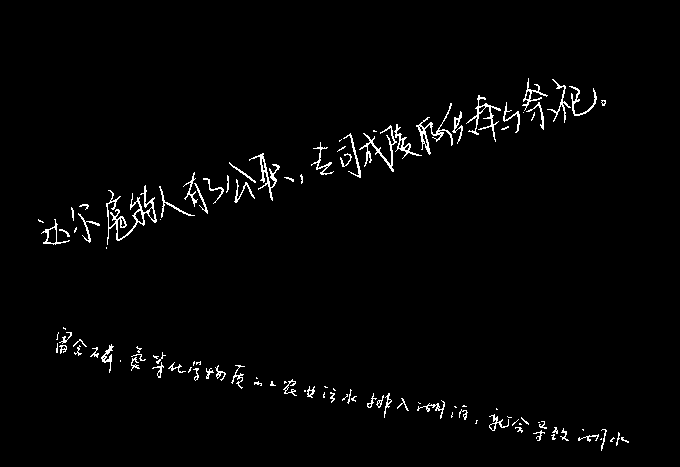 达尔扈特人有了公职，专司成陵的供奉与祭祀。
富含磷、氮等化学物质的工农业污水排入湖泊，就会导致湖水